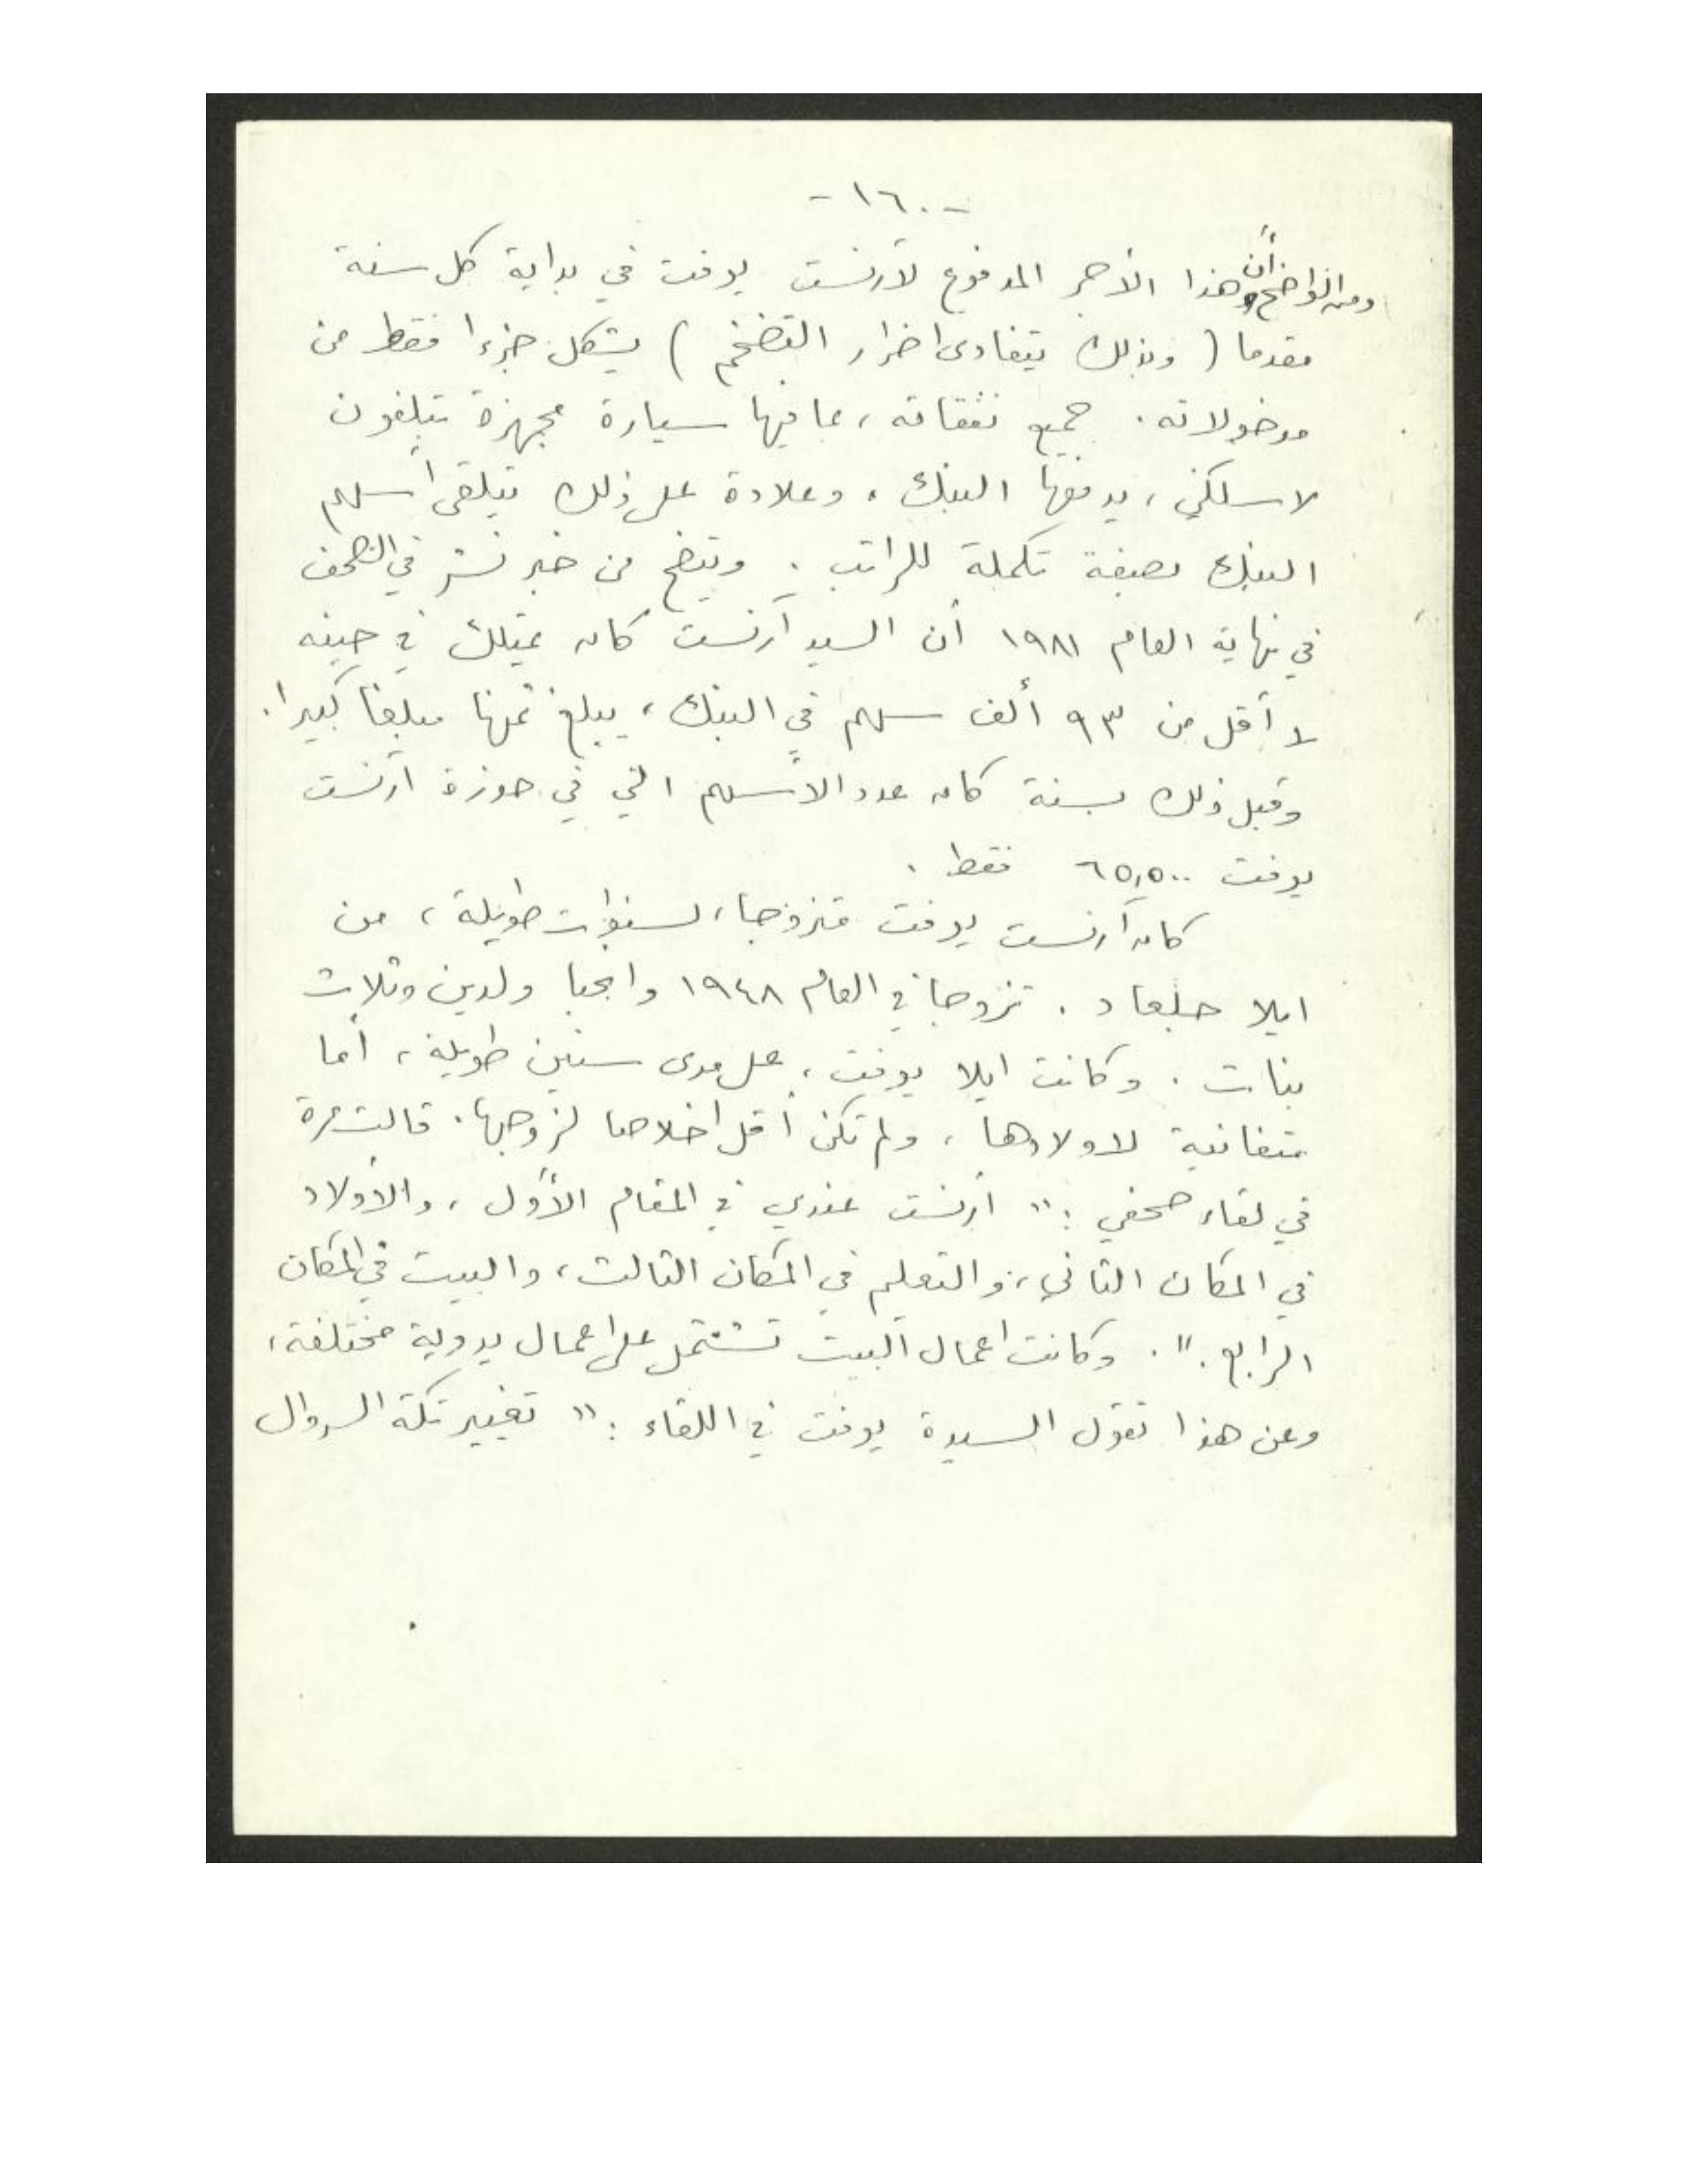 - ١٦٠ -
ومن الواضح أن هذا الأجر المدفوع لآرنست يوفت في بداية كل سنة
مقدما ( وبذلك يتفادى اضرار التضخم ) يشكل جزءا فقط من
مدخولاته . جميع نفقاته ، بما فيها سيارة مجهزة بتلفون
لاسلكي ، يدفعها البنك ، وعلاوة على ذلك يتلقى أسهم
البنك بصفة تكملة للراتب . ويتضح من خبر نشر في الصحف
في نهاية العام ١٩٨١ أن السيد آرنست كان يمتلك في حينه
لا أقل من ٩٣ ألف سهم في البنك ، يبلغ ثمنها مبلغا كبيرا .
وقبل ذلك بسنة كان عدد الأسهم التي في حوزة آرنست
يوفت ٦٥,٥٠٠ فقط .
كان آرنست يوفت متزوجا ، لسنوات طويلة ، من
ايلا جلعاد . تزوجا في العام ١٩٤٨ وانجبا ولدين وثلاث
بنات . وكانت ايلا يوفت ، على مدى سنين طويلة ، أما
متفانية لاولادها ، ولم تكن أقل اخلاصا لزوجها . قالت مرة
في لقاء صحفي : " آرنست عندي في المقام الأول ، والأولاد
في المكان الثاني ، والتعليم في المكان الثالث ، والبيت في المكان
الرابع . " . وكانت اعمال البيت تشتمل على اعمال يدوية مختلفة ،
وعن هذا تقول السيدة يوفت في اللقاء : " تغيير تكة السروال